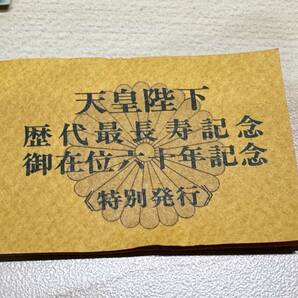 天皇陛下
歴代最長寿記念
御在位六十年記念
《特別発行》